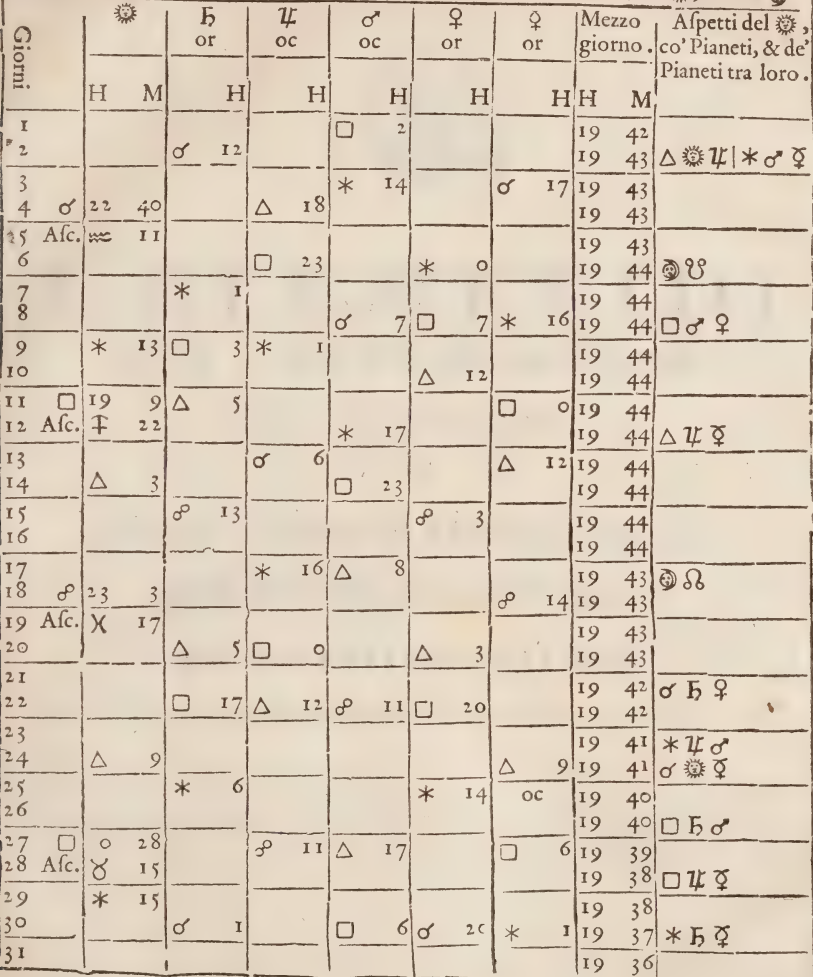 ☼ ♄ ♃ ♂ ♀ ☿ Mezzo Aſpetti del ☼,
Giorni or oc oc or or giorno. co' Pianeti, & de'
Pianeti tra loro.
H M H H H H H H M
1 □ 2 19 42
2 ☌ 12 19 43 △ ☼ ♃ | ⚹ ♂ ☿
3 ⚹ 14 ☌ 17 19 43
4 ☌ 22 40 △ 18 19 43
5 Aſc. ♒ 11 19 43
6 □ 23 ⚹ 0 19 44 ☽ ☋
7 ⚹ 1 19 44
8 ☌ 7 □ 7 ⚹ 16 19 44 □ ♂ ♀
9 ⚹ 13 □ 3 ⚹ 1 19 44
10 △ 12 19 44
11 □ 19 9 △ 5 □ 0 19 44
12 Aſc. ♐ 22 ⚹ 17 19 44 △ ♃ ☿
13 ☌ 6 △ 12 19 44
14 △ 3 □ 23 19 44
15 ☍ 13 ☍ 3 19 44
16 19 44
17 ⚹ 16 △ 8 19 43 ☽ ☊
18 ☍ 23 3 ☍ 14 19 43
19 Aſc. ♓ 17 19 43
20 △ 5 □ 0 △ 3 19 43
21 19 42 ☌ ♄ ♀
22 □ 17 △ 12 ☍ 11 □ 20 19 42
23 19 41 ⚹ ♃ ♂
24 △ 9 △ 9 19 41 ☌ ☼ ☿
25 ⚹ 6 ⚹ 14 oc 19 40
26 19 40 □ ♄ ♂
27 □ 0 28 ☍ 11 △ 17 □ 6 19 39
28 Aſc. ♉ 15 19 38 □ ♃ ☿
29 ⚹ 15 19 38
30 ☌ 1 □ 6 ☌ ⚹ 1 19 37 ⚹ ♄ ☿
31 19 36